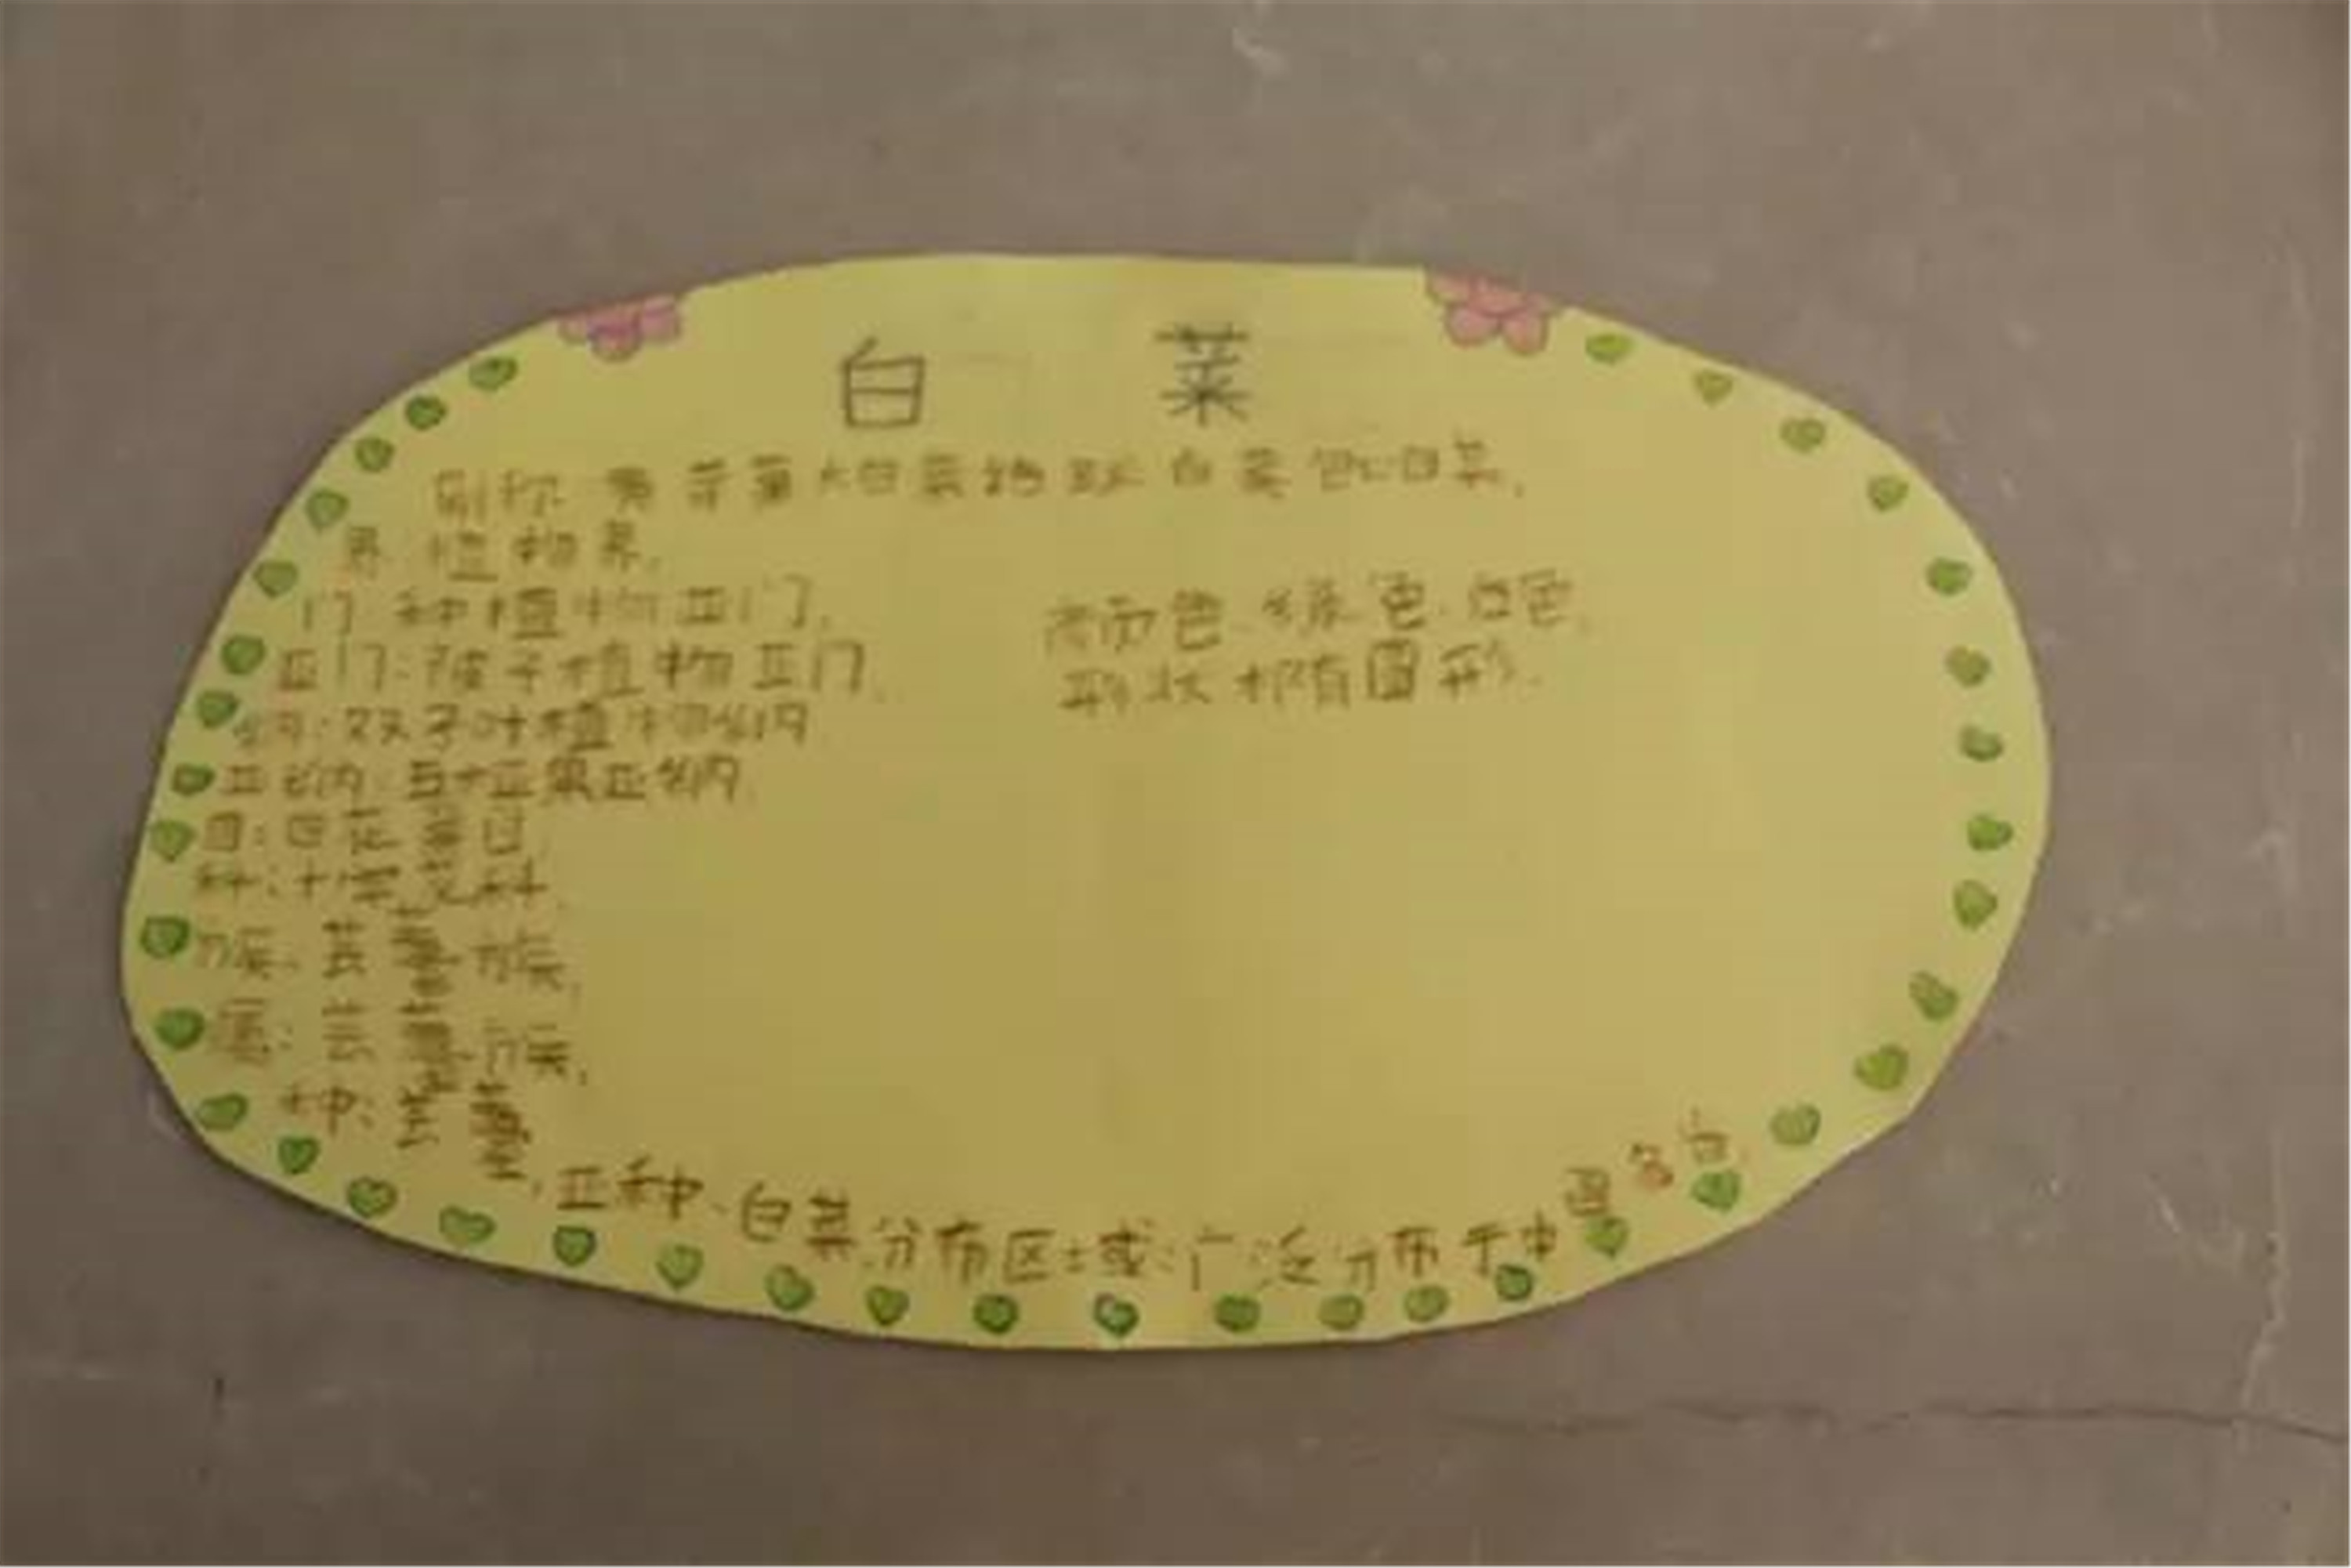 白 菜
别称 黄芽菜 大白菜 结球 白菜 包心白菜.
界 植物界.
门 种植物亚门.
亚门:被子植物亚门.
纲:双子叶植物纲
亚纲:五桠果亚纲
目:白花菜目
科:十字花科.
族:芸薹族.
属:芸薹族.
种:芸薹.
亚种.白菜.分布区域:广泛分布于中国各台.
颜色.绿色.白色.
形状 椭圆形.